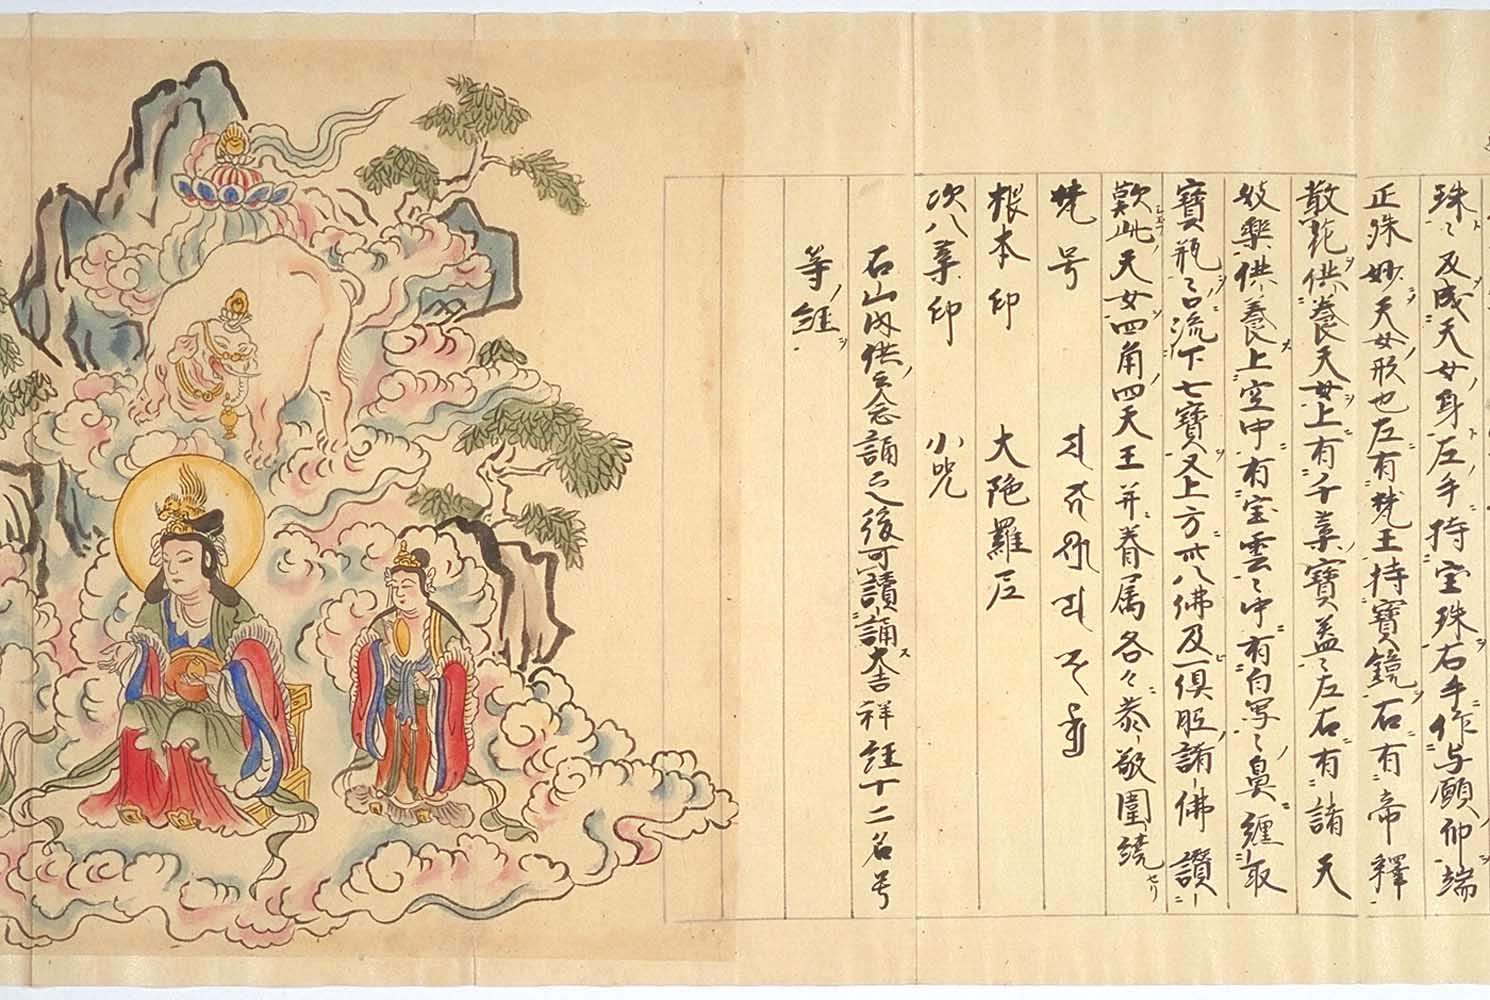 珠〻及成天女身左手持宝珠右手作与願仰端
正殊妙天女形也左有梵王持寶鏡右有帝釋
散花供養天女上有千葉寶蓋〻左右有諸天
妓樂供養上空中有宝雲〻中有白象〻鼻纏取
寶瓶〻口流下七寶又上方卅八佛及一俱胝諸佛讃
歎此天女四角四天王并眷属各々恭敬圍繞セリ
梵号
根本印 大陁羅尼
次八葉印 小呪
石山内供云念誦之後可讀誦大吉祥経十二名号
等経